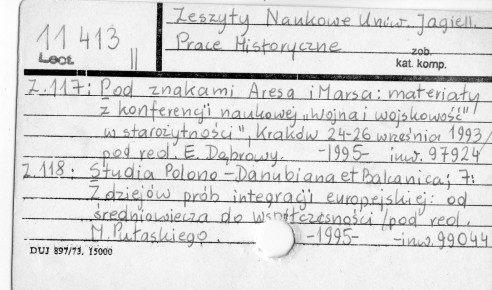 Zeszyty Naukowe Uniw. Jagiell.
11 413 || Prace Historyczne zob.
Lect. kat. komp.
Z.117: Pod znakami Aresa i Marsa: materiały
z konferencji naukowej "Wojna i wojskowość
w starożytności", Kraków 24-26 września 1993/
pod red. E. Dąbrowy. -1995- inw. 97924
Z.118: Studia Polono-Danubiana et Balcanica; 7:
Z dziejów prób integracji europejskiej: od
średniowiecza do współczesności /pod red.
M. Pułaskiego. -1995- -inw. 99044
DUJ 897/73. 15000